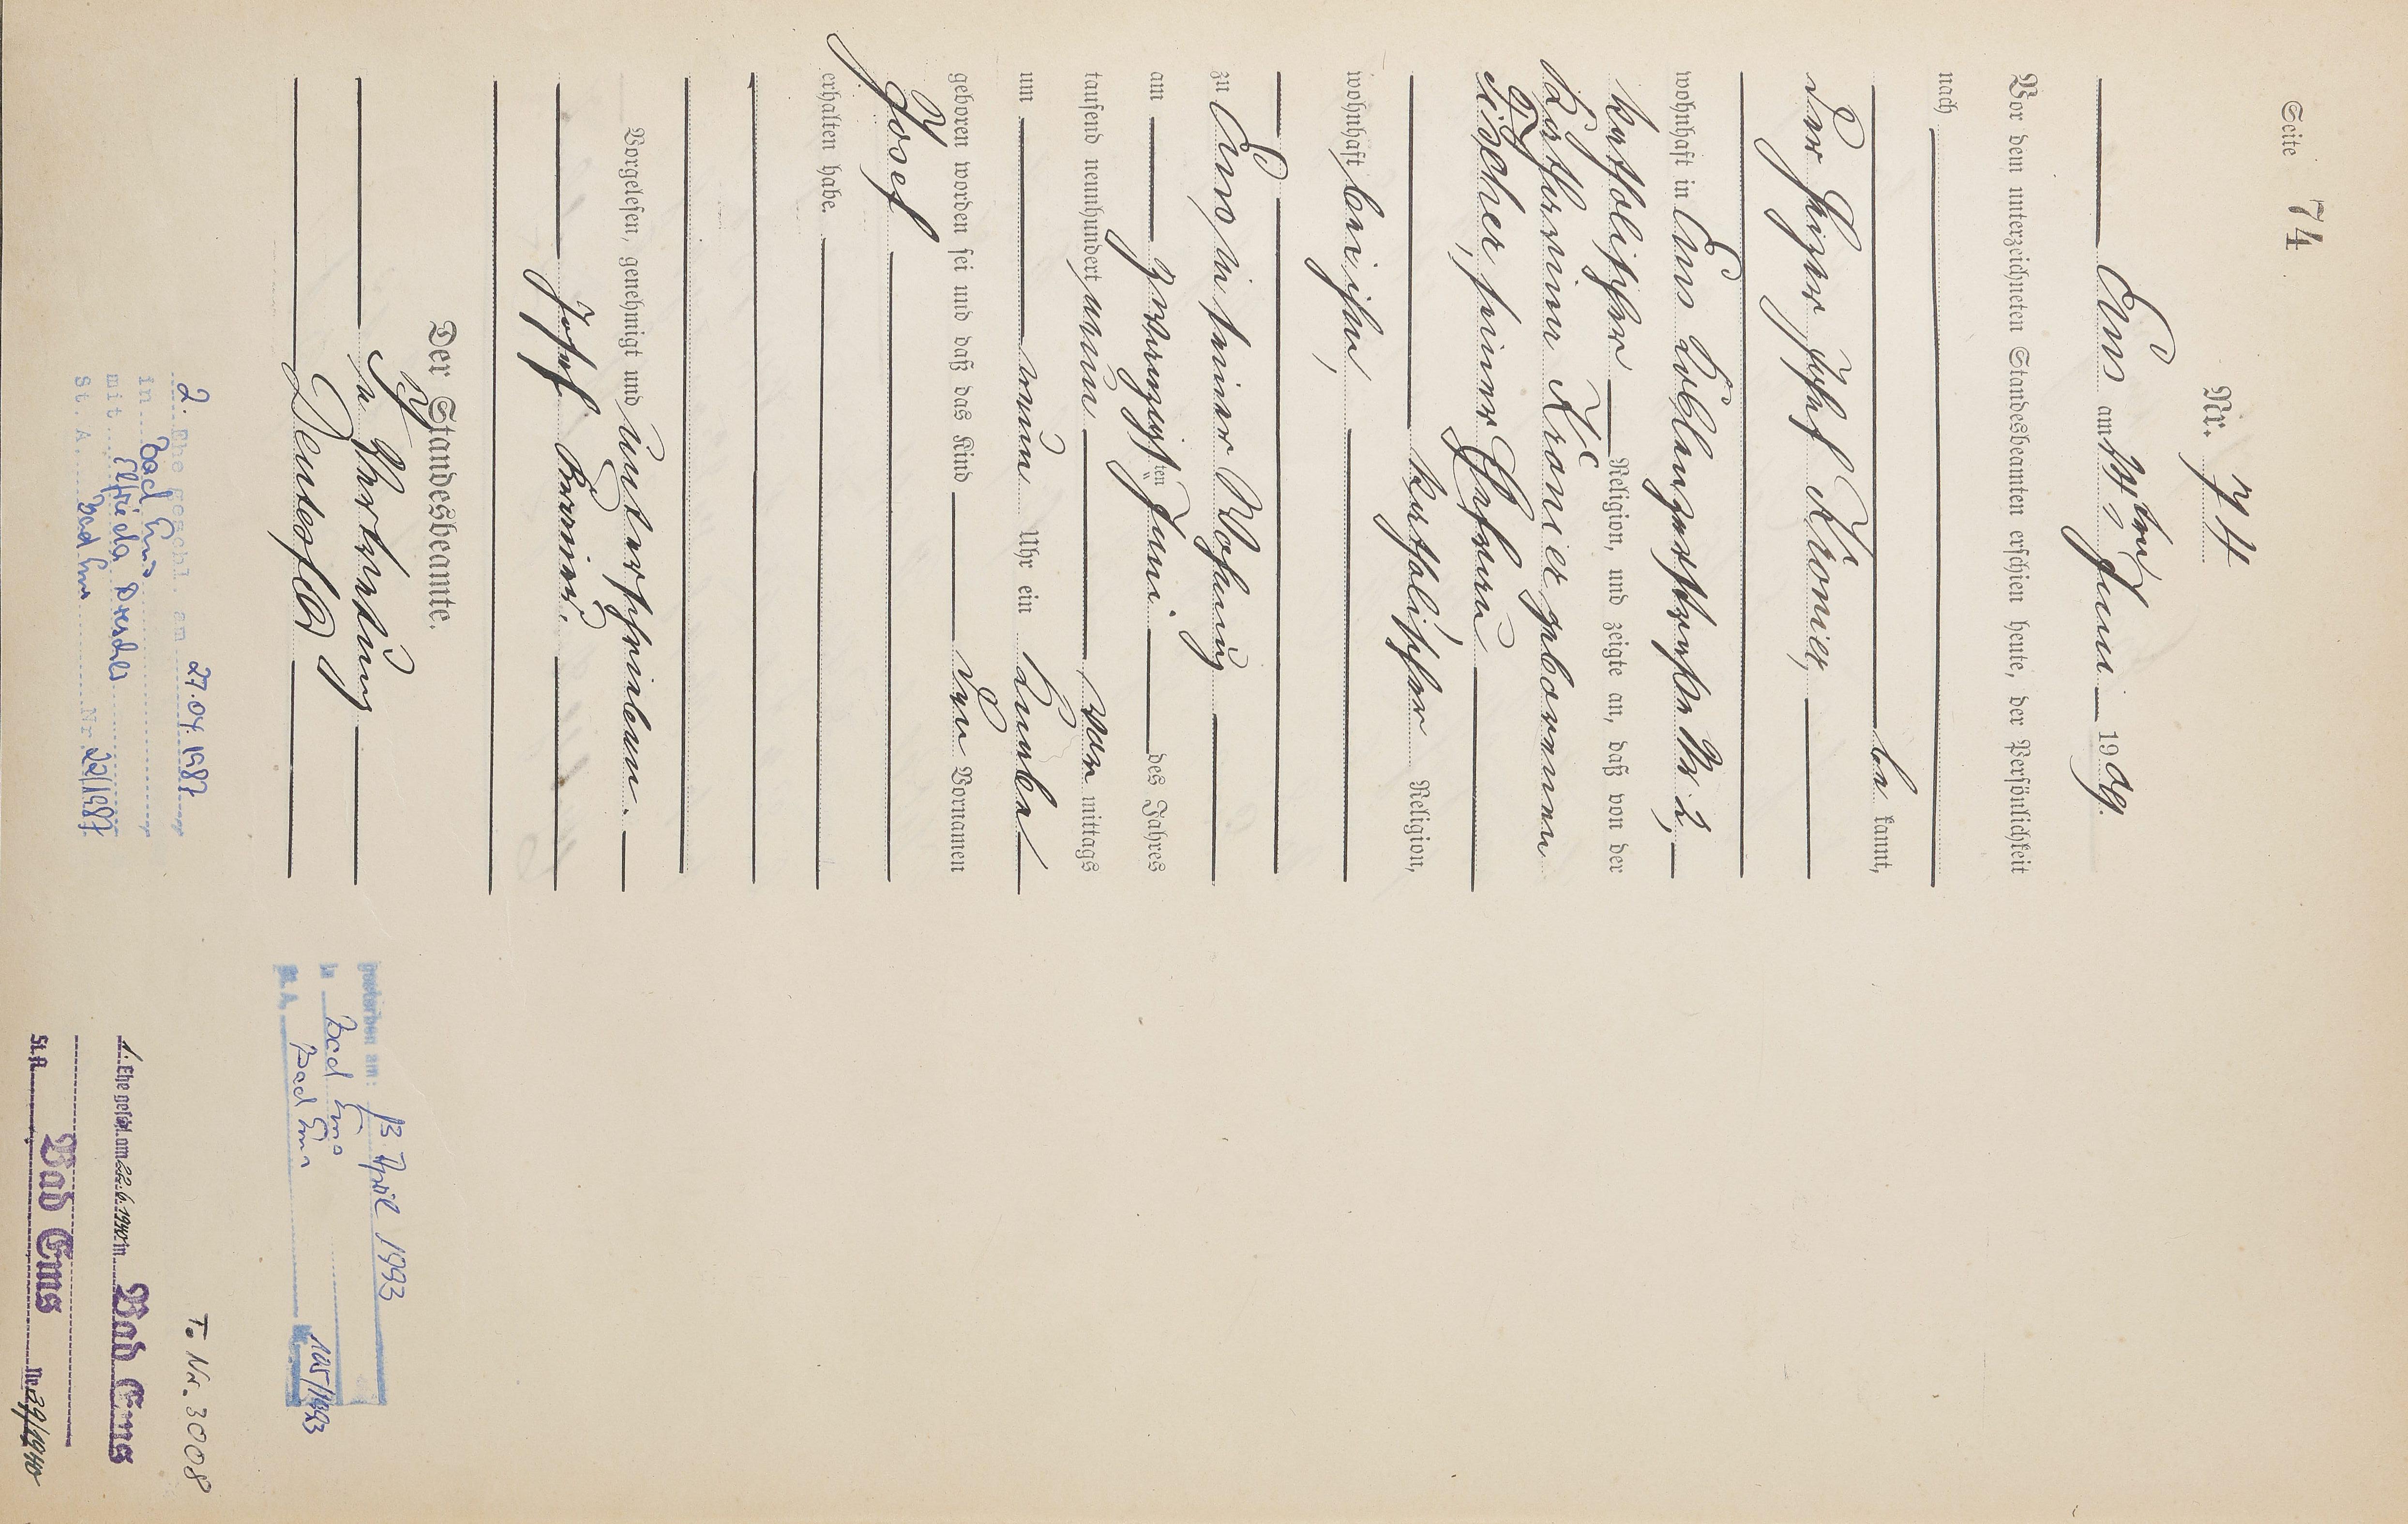 Seite 74
Nr. 74
Ems am 24ten Juni 1909.
Vor dem unterzeichneten Standesbeamten erschien heute, der Persönlichkeit
nach
be kannt,
der Josef Kronier,
wohnhaft in Ems Koblenzerstraße Nr. 2,
katholischer Religion, und zeigte an, daß von der
Katharina Kronier geborenen
Fischer, seiner Ehefrau
katholischer Religion,
wohnhaft bei ihm,
zu Ems in seiner Wohnung
am zwanzigsten Juni des Jahres
tausend neunhundert neun vor mittags
um neun Uhr ein Knabe
geboren worden sei und daß das Kind den Vornamen
Josef
erhalten habe.
Vorgelesen, genehmigt und unterschrieben.
Josef Kronier.
Der Standesbeamte.
In Vertretung
2. Ehe geschl. am 27.04.1987
in Bad Ems
mit Elfriede
St. A. Bad Ems Nr. 22/1987
gestorben am: 13. April 1993
in Bad Ems
St. A. Bad Ems Nr. 105/1993
To Nr. 3008
1. Ehe geschl. am 22.6.1940 in Bad Ems
St.A. Bad Ems Nr. 39/1940